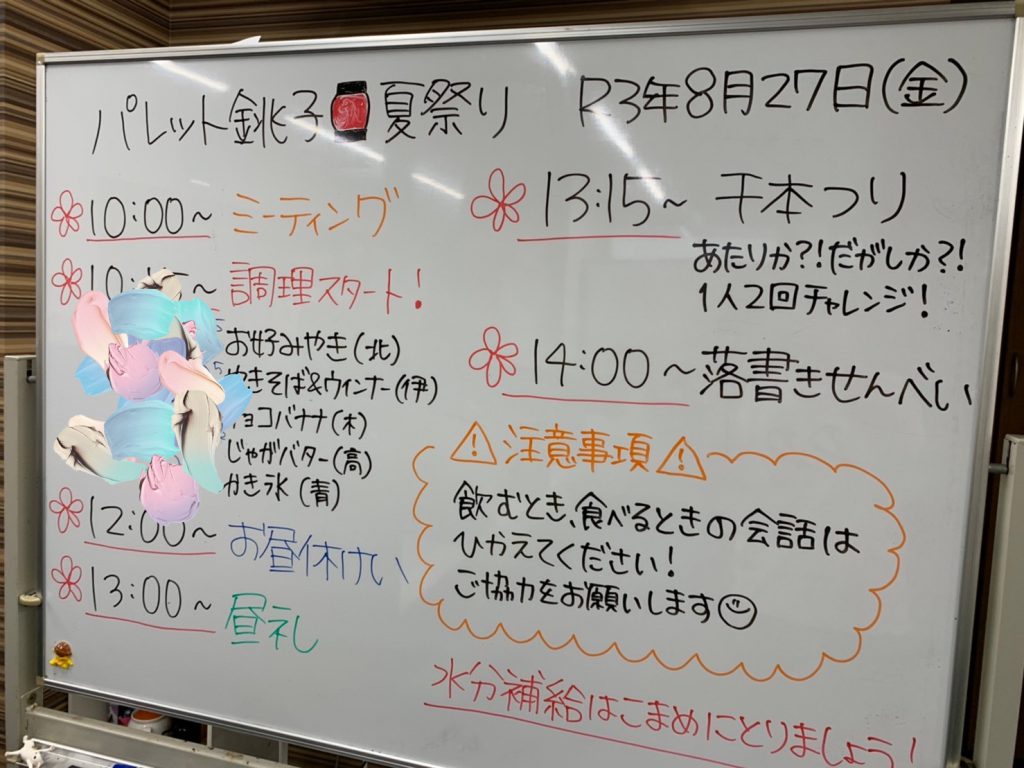 パレット銚子 夏祭り R3年8月27日(金)
10:00～ ミーティング
調理スタート!
お好みやき(北)
やきそば&ウインナー(伊)
チョコバナナ(木)
じゃがバター(高)
かき氷(青)
12:00～ お昼休けい
13:00～ 昼礼
13:15～ 千本つり
あたりか?!だがしか?!
1人2回チャレンジ!
14:00～ 落書きせんべい
⚠注意事項⚠
飲むとき、食べるときの会話は
ひかえてください!
ご協力をお願いします☺
水分補給はこまめにとりましょう!